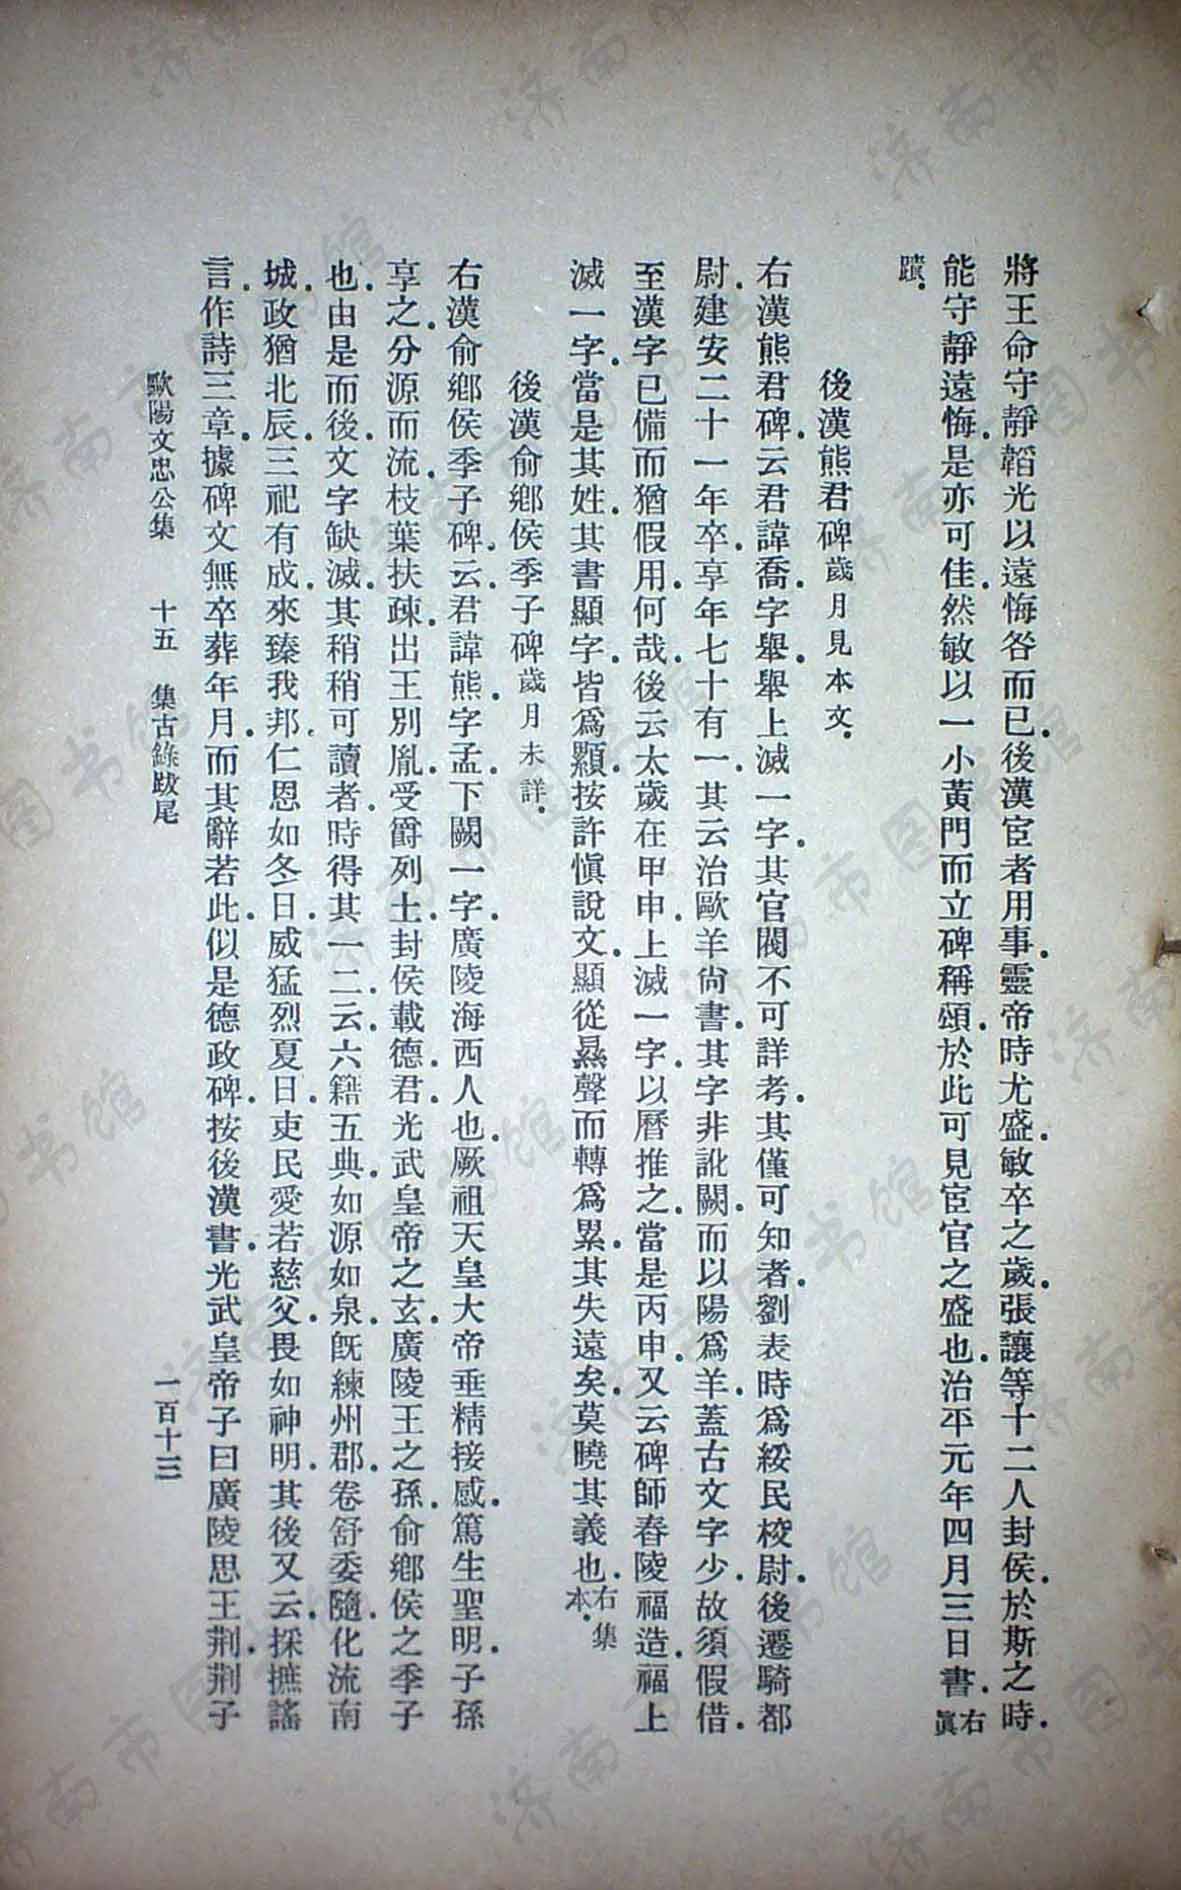 將王命守靜韜光以遠悔咎而已後漢宦者用事靈帝時尤盛敏卒之歲張讓等十二人封侯於斯之時
能守靜遠悔是亦可佳然敏以一小黃門而立碑稱頌於此可見宦官之盛也治平元年四月三日書右眞
蹟
後漢熊君碑歲月見本文
右漢熊君碑云君諱喬字舉舉上滅一字其官閥不可詳考其僅可知者劉表時爲綏民校尉後遷騎都
尉建安二十一年卒享年七十有一其云治歐羊尙書其字非訛闕而以陽爲羊蓋古文字少故須假借
至漢字已備而猶假用何哉後云太歲在甲申上滅一字以曆推之當是丙申又云碑師舂陵福造福上
滅一字當是其姓其書顯字皆爲顯按許愼說文顯從㬎聲而轉爲累其失遠矣莫曉其義也右集本
後漢俞鄉侯季子碑歲月未詳
右漢俞鄉侯季子碑云君諱熊字孟下闕一字廣陵海西人也厥祖天皇大帝垂精接感篤生聖明子孫
享之分源而流枝葉扶疎出王別胤受爵列土封侯載德君光武皇帝之玄廣陵王之孫俞鄉侯之季子
也由是而後文字缺滅其稍稍可讀者時得其一二云六籍五典如源如泉旣練州郡卷舒委隨化流南
城政猶北辰三祀有成來臻我邦仁恩如冬日威猛烈夏日吏民愛若慈父畏如神明其後又云採摭謠
言作詩三章據碑文無卒葬年月而其辭若此似是德政碑按後漢書光武皇帝子曰廣陵思王荆荆子
歐陽文忠公集 十五 集古錄跋尾 一百十三
济南市图书馆